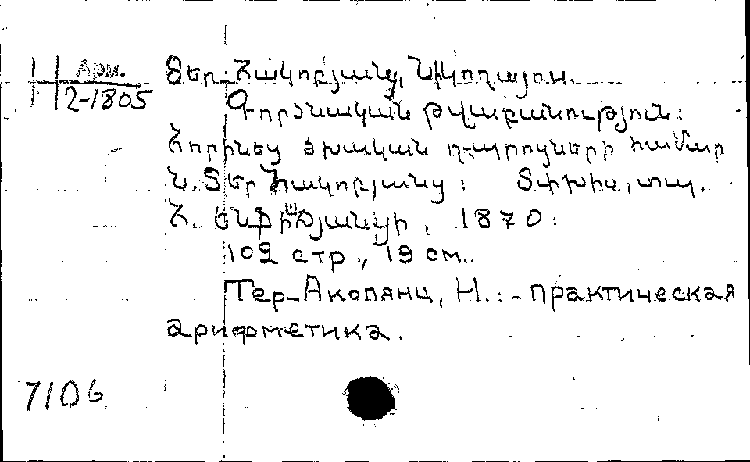 Н Арм.
2-1805
Տեր-Հակոբյանց, Նիկողայոս.
Գործնական թվաբանություն:
Հորինեց ծխական դպրոցների համար
Ն. Տեր Հակոբյանց: Տփխիս, տպ.
Հ. Էնֆիաճյանցի, 1870.
102 стр., 19 см..
Тер-Акопянц, Н.:- практическая
арифметика.
7106